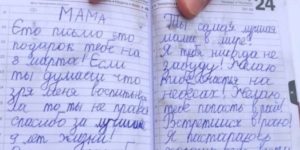 МАМА
Єто письмо это
подарок тебе на
8 марта! Если
ты думаєш что
зря меня воспитывала
За то, ты не права
спасибо за лучшие
9 лет жизни!
24
Ты самая лучшая
мама в мире!
Я тебя никогда не
забуду! Желаю
на
небесах! Желаю,
тебе попасть в рай!
Встретимся в раю!
Я постараюсь